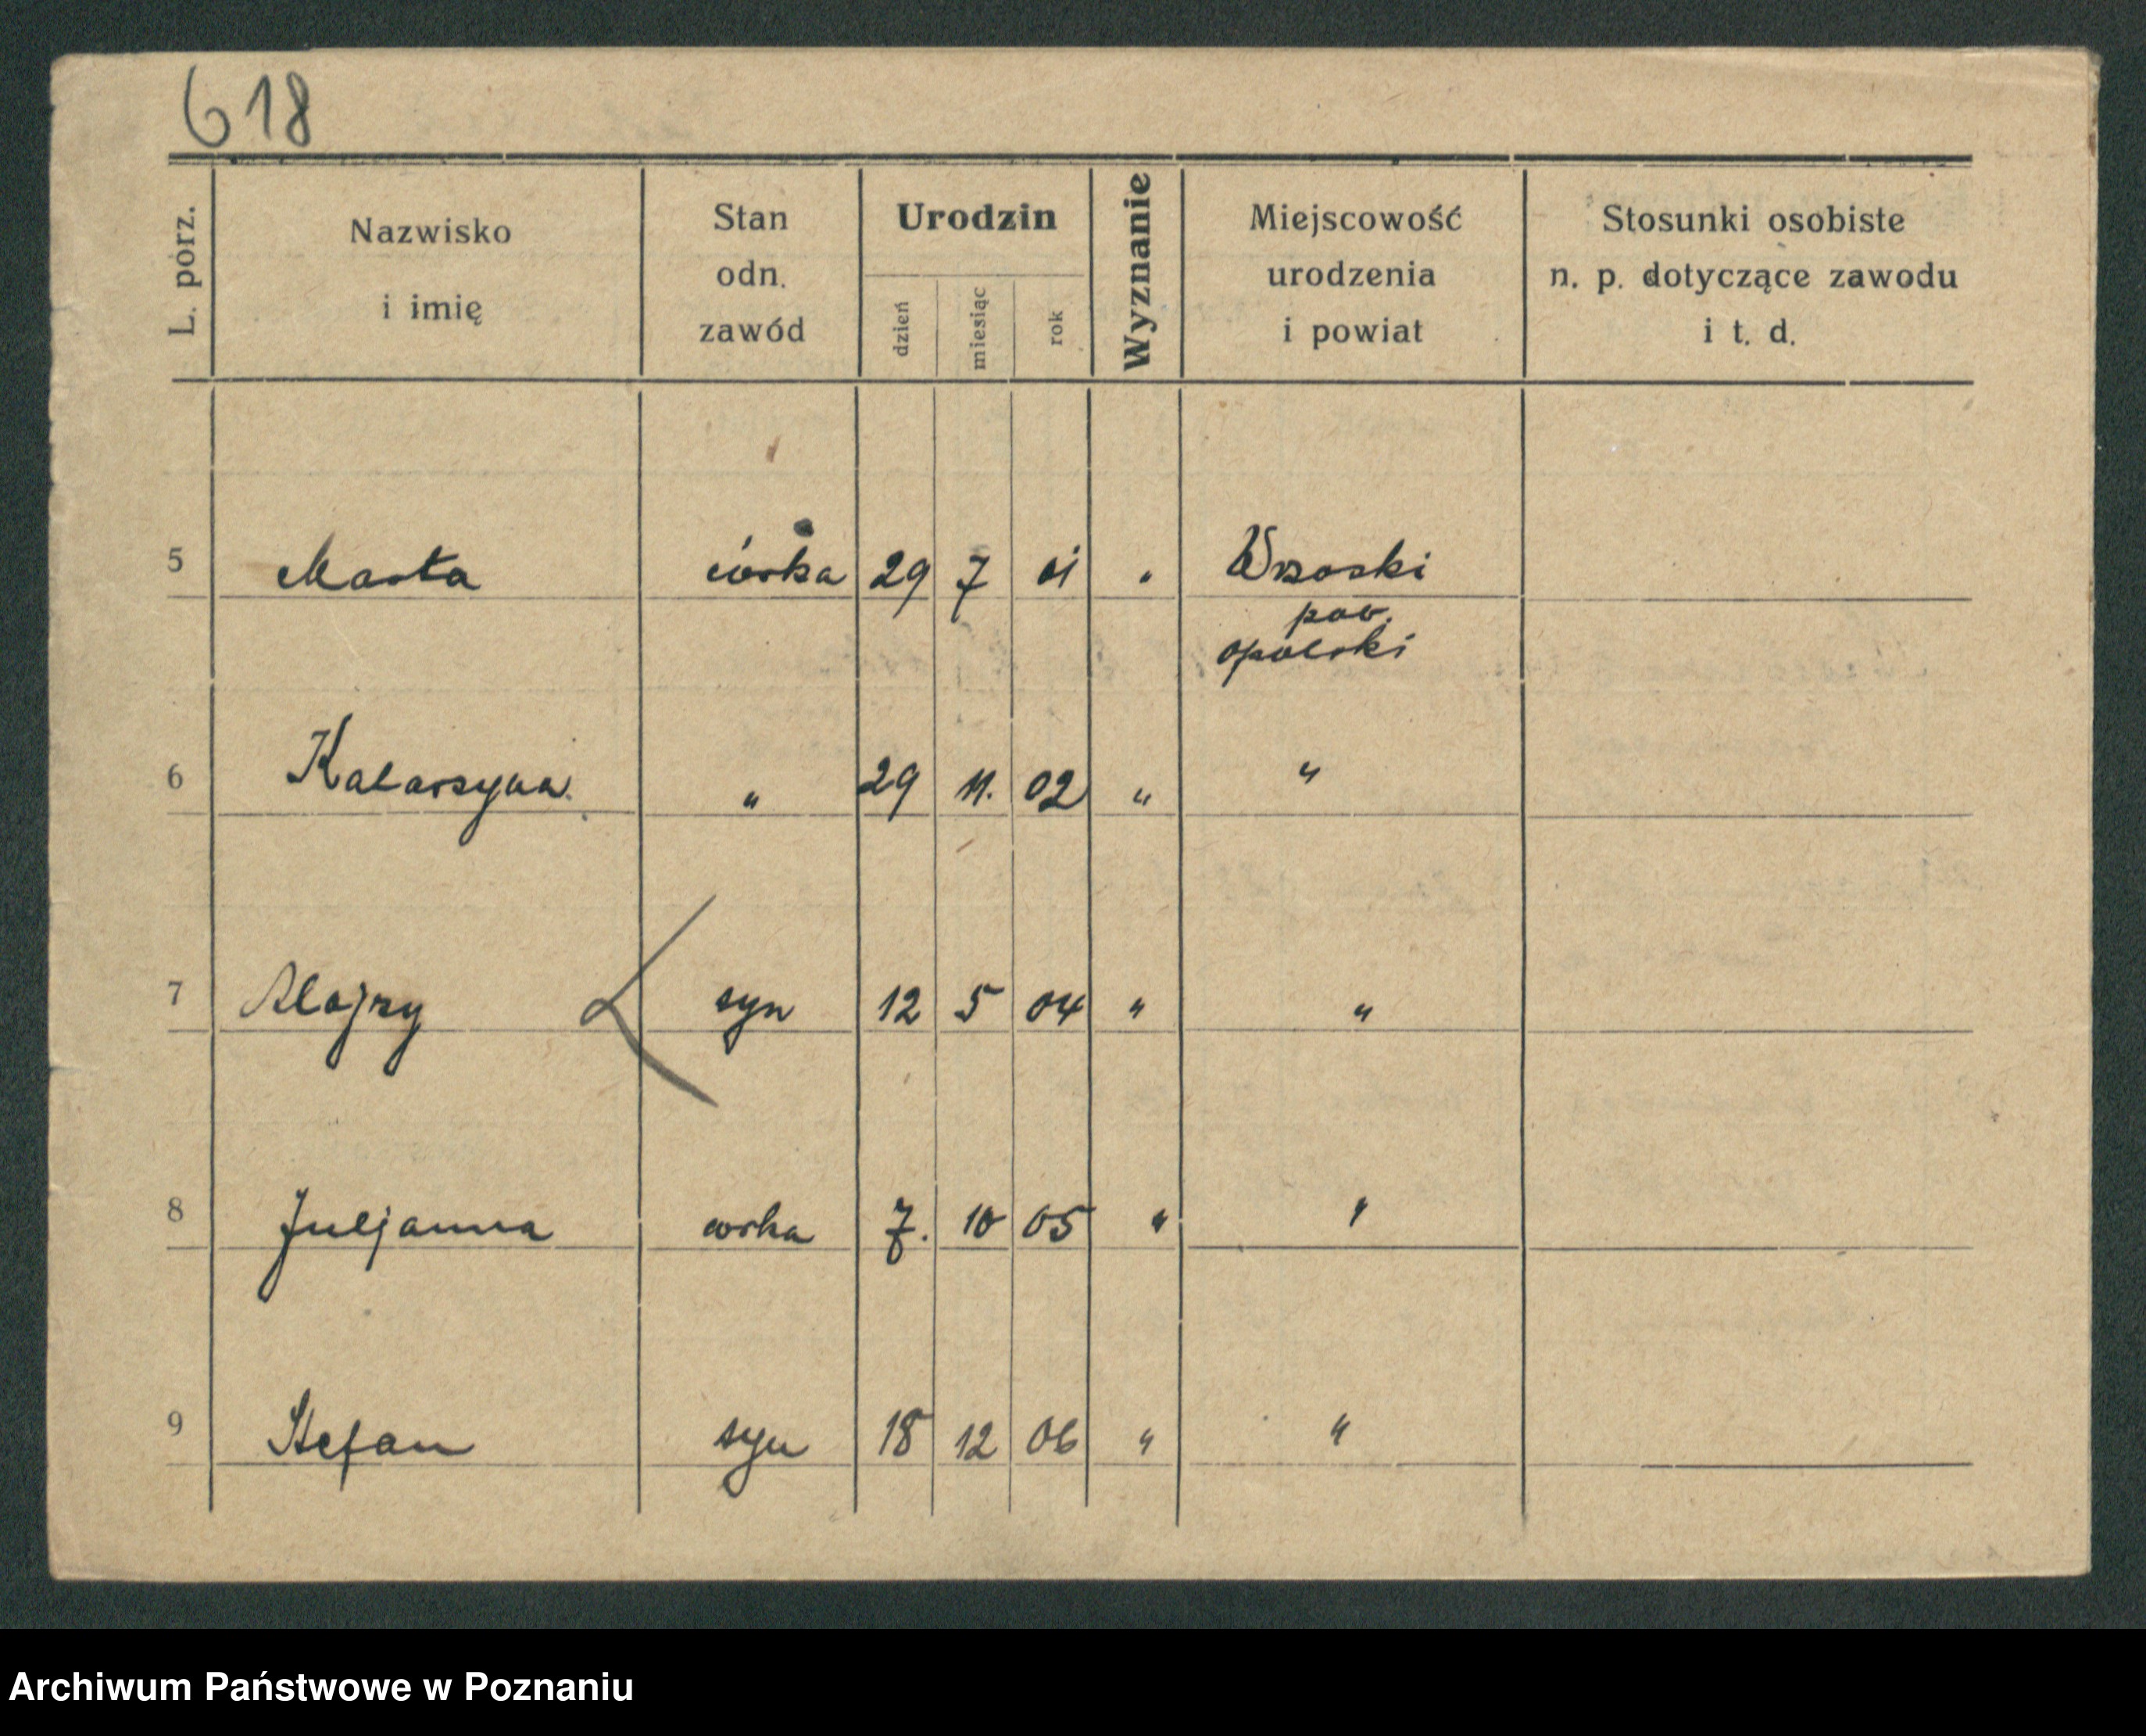 618
L. porz. Nazwisko i imię Stan odn. zawód Urodzin dzień miesiąc rok Wyznanie Miejscowość urodzenia i powiat Stosunki osobiste n. p. dotyczące zawodu i t. d.
5 Marta córka 29 7 01 " Wrzoski
pow.
opolski
6 Katarzyna " 29 11. 02 " "
7 Alojzy syn 12 5 04 " "
8 Juljanna corka 7. 10 05 " "
9 Stefan syn 18 12 06 " "
Archiwum Państwowe w Poznaniu